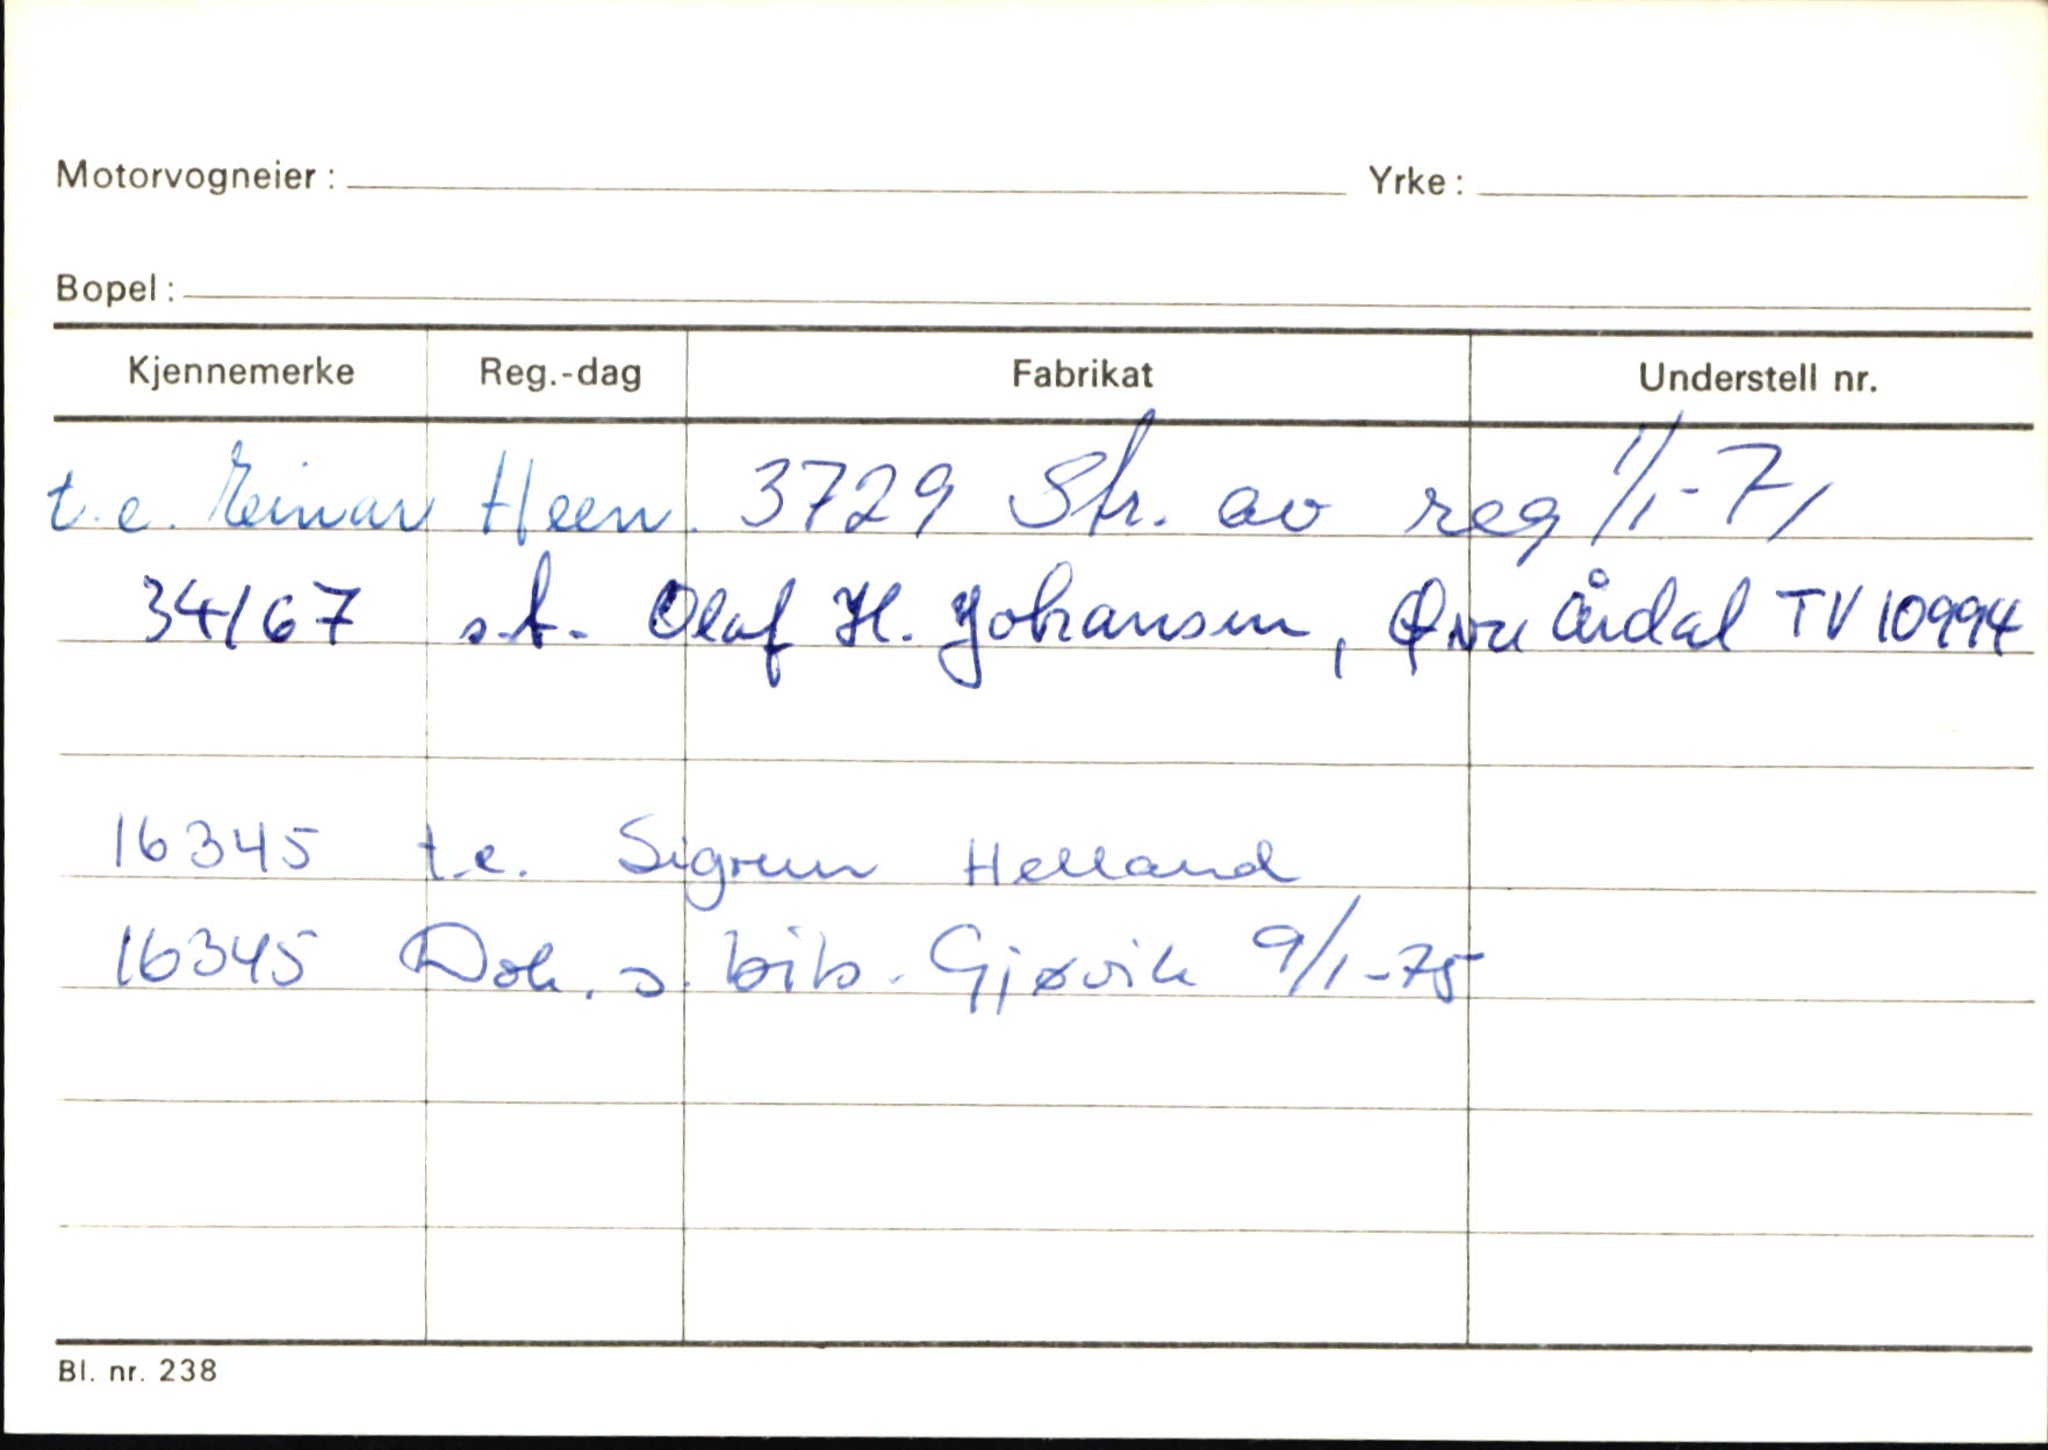 Motorvogneier : Yrke :
Bopel :
Kjennemerke Reg.-dag Fabrikat Understell nr.
t.e. Einar Heen. 3729 Str. av reg 1/1-71
34167 s.t. Olaf H. Johansen, Øvre Årdal TV 10994
16345 t.e. Sigrun Helland
16345 Dok. s. bils. Gjøvik 9/1-75
Bl. nr. 238